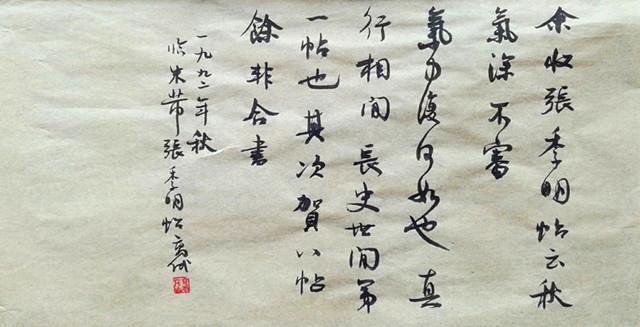 余收張季明帖云秋
氣深不審
氣力復何如也真
行相間長史世間第
一帖也其次賀八帖
餘非合書
一九九二年秋
臨米芾張季明帖